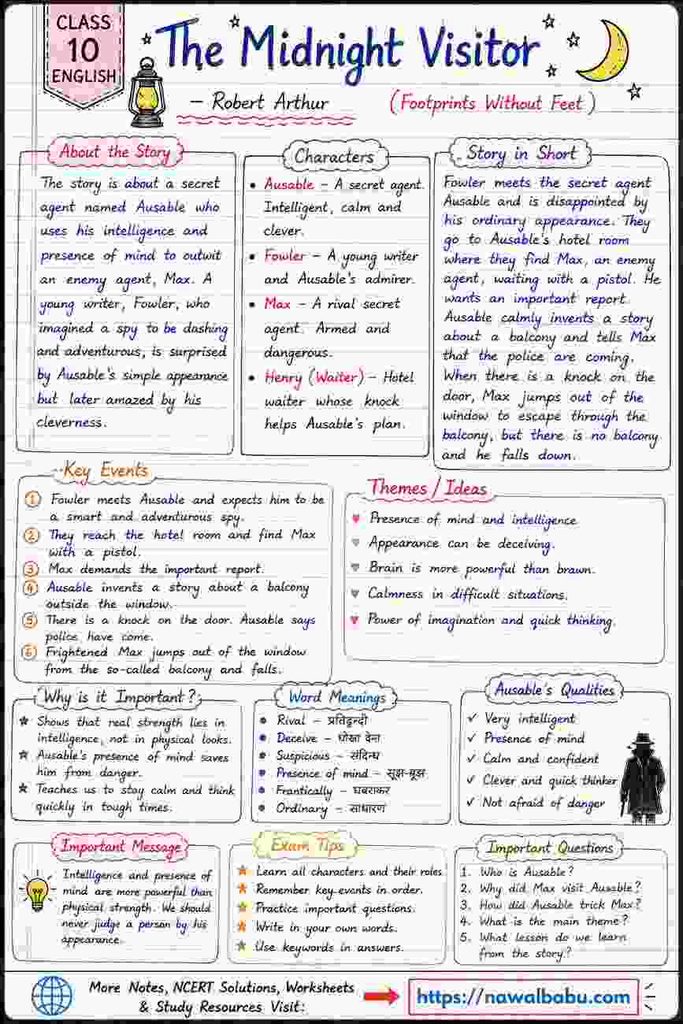 CLASS
10
ENGLISH
The Midnight Visitor
– Robert Arthur
(Footprints Without Feet)
About the Story
The story is about a secret
agent named Ausable who
uses his intelligence and
presence of mind to outwit
an enemy agent, Max. A
young writer, Fowler, who
imagined a spy to be dashing
and adventurous, is surprised
by Ausable's simple appearance
but later amazed by his
cleverness.
Characters
• Ausable – A secret agent.
Intelligent, calm and
clever.
• Fowler – A young writer
and Ausable's admirer.
• Max – A rival secret
agent. Armed and
dangerous.
• Henry (Waiter) – Hotel
waiter whose knock
helps Ausable's plan.
Story in Short
Fowler meets the secret agent
Ausable and is disappointed by
his ordinary appearance. They
go to Ausable's hotel room
where they find Max, an enemy
agent, waiting with a pistol. He
wants an important report.
Ausable calmly invents a story
about a balcony and tells Max
that the police are coming.
When there is a knock on the
door, Max jumps out of the
window to escape through the
balcony, but there is no balcony
and he falls down.
Key Events
1 Fowler meets Ausable and expects him to be
a smart and adventurous spy.
2 They reach the hotel room and find Max
with a pistol.
3 Max demands the important report.
4 Ausable invents a story about a balcony
outside the window.
5 There is a knock on the door. Ausable says
police have come.
6 Frightened Max jumps out of the window
from the so-called balcony and falls.
Themes / Ideas
Presence of mind and intelligence
Appearance can be deceiving.
Brain is more powerful than brawn.
Calmness in difficult situations.
Power of imagination and quick thinking.
Why is it Important?
Shows that real strength lies in
intelligence, not in physical looks.
Ausable's presence of mind saves
him from danger.
Teaches us to stay calm and think
quickly in tough times.
Word Meanings
• Rival – प्रतिद्वन्दी
• Deceive – धोखा देना
• Suspicious – संदिग्ध
• Presence of mind – सूझ-बूझ
• Frantically – घबराकर
• Ordinary – साधारण
Ausable's Qualities
✓ Very intelligent
✓ Presence of mind
✓ Calm and confident
✓ Clever and quick thinker
✓ Not afraid of danger
Important Message
Intelligence and presence of
mind are more powerful than
physical strength. We should
never judge a person by his
appearance.
Exam Tips
Learn all characters and their roles
Remember key events in order.
Practice important questions.
Write in your own words.
Use keywords in answers.
Important Questions
1. Who is Ausable?
2. Why did Max visit Ausable?
3. How did Ausable trick Max?
4. What is the main theme?
5. What lesson do we learn
from the story?
More Notes, NCERT Solutions, Worksheets
& Study Resources Visit:
https://nawalbabu.com